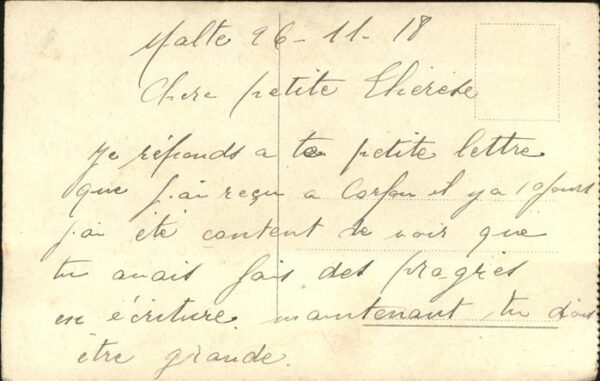 Malte 26-11-18
Chere petite Thérèse
Je réponds a ta petite lettre
que j'ai reçu a Corfou il y a 10 jours
j'ai été content de voir que
tu avais fais des progrès
en écriture. maintenant tu dois
être grande.